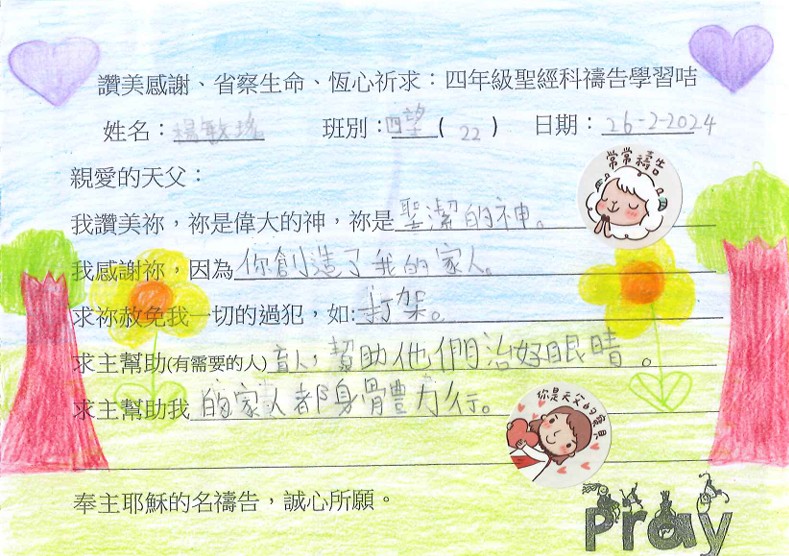 讚美感謝、省察生命、恆心祈求：四年級聖經科禱告學習咭
姓名：楊敏 班別：四望( 22 ) 日期：26-2-2024
常常禱告
親愛的天父：
我讚美祢，祢是偉大的神，祢是聖潔的神。
我感謝祢，因為你創造了我的家人。
求祢赦免我一切的過犯，如:打架。
求主幫助(有需要的人)盲人，幫助他們治好眼睛。
求主幫助我的家人都身體力行。
你是天父的寶貝
奉主耶穌的名禱告，誠心所願。
pray